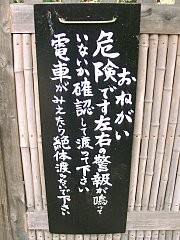 おねがい
危険です左右の警報が鳴って
いないか確認して渡って下さい
電車がみえたら絶体渡らないで下さい